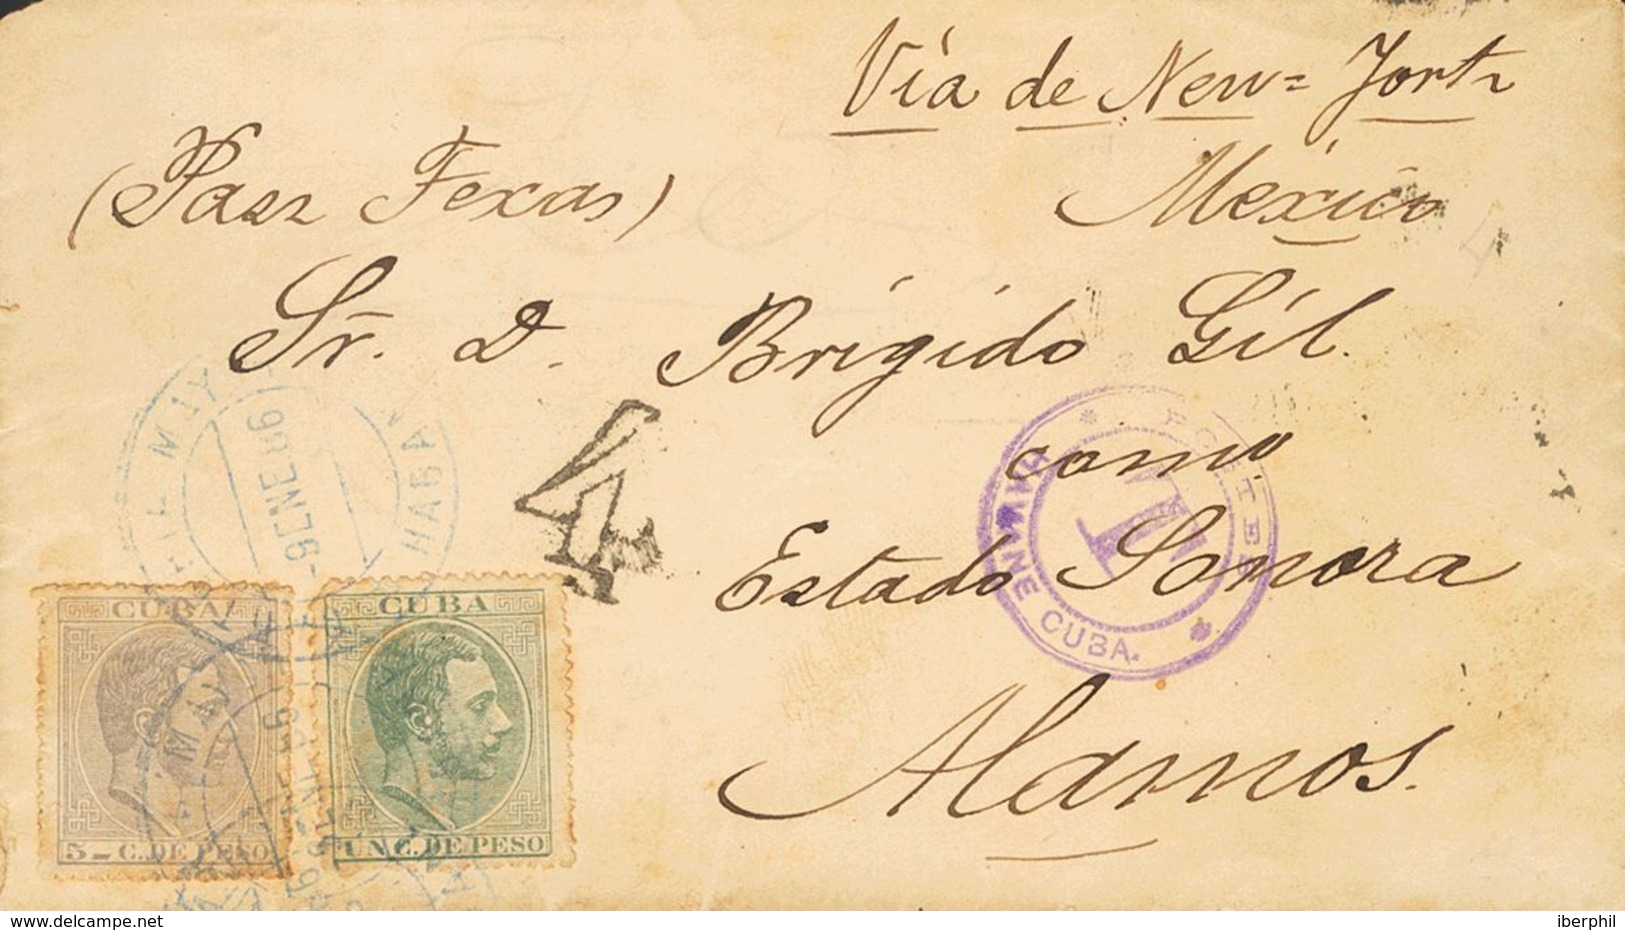 Vía de New= York
(Pass Texas) México
Sr. D. Brígido Gil.
como
Estado Sonora
Alamos.
4
9 ENE 86
HABA
T
HAVANE CUBA.
CUBA
5 - C. DE PESO
CUBA
UN C. DE PESO
www.delcampe.net
iberphil